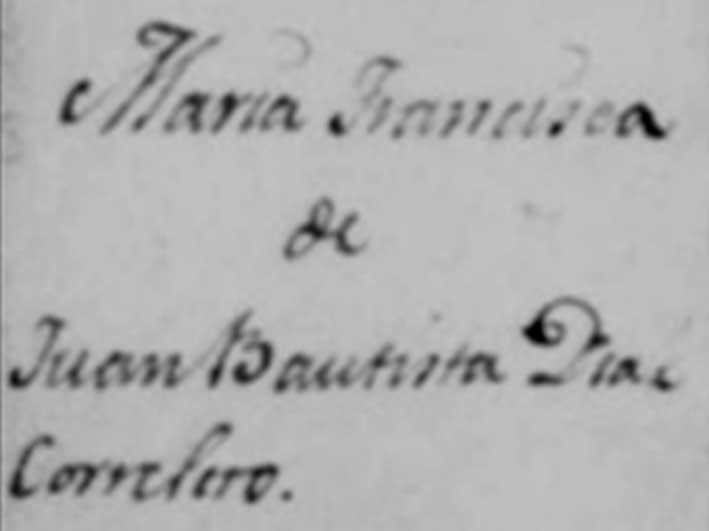 Maria Francisca
de
Juan Bautista Diaz
Correlero.